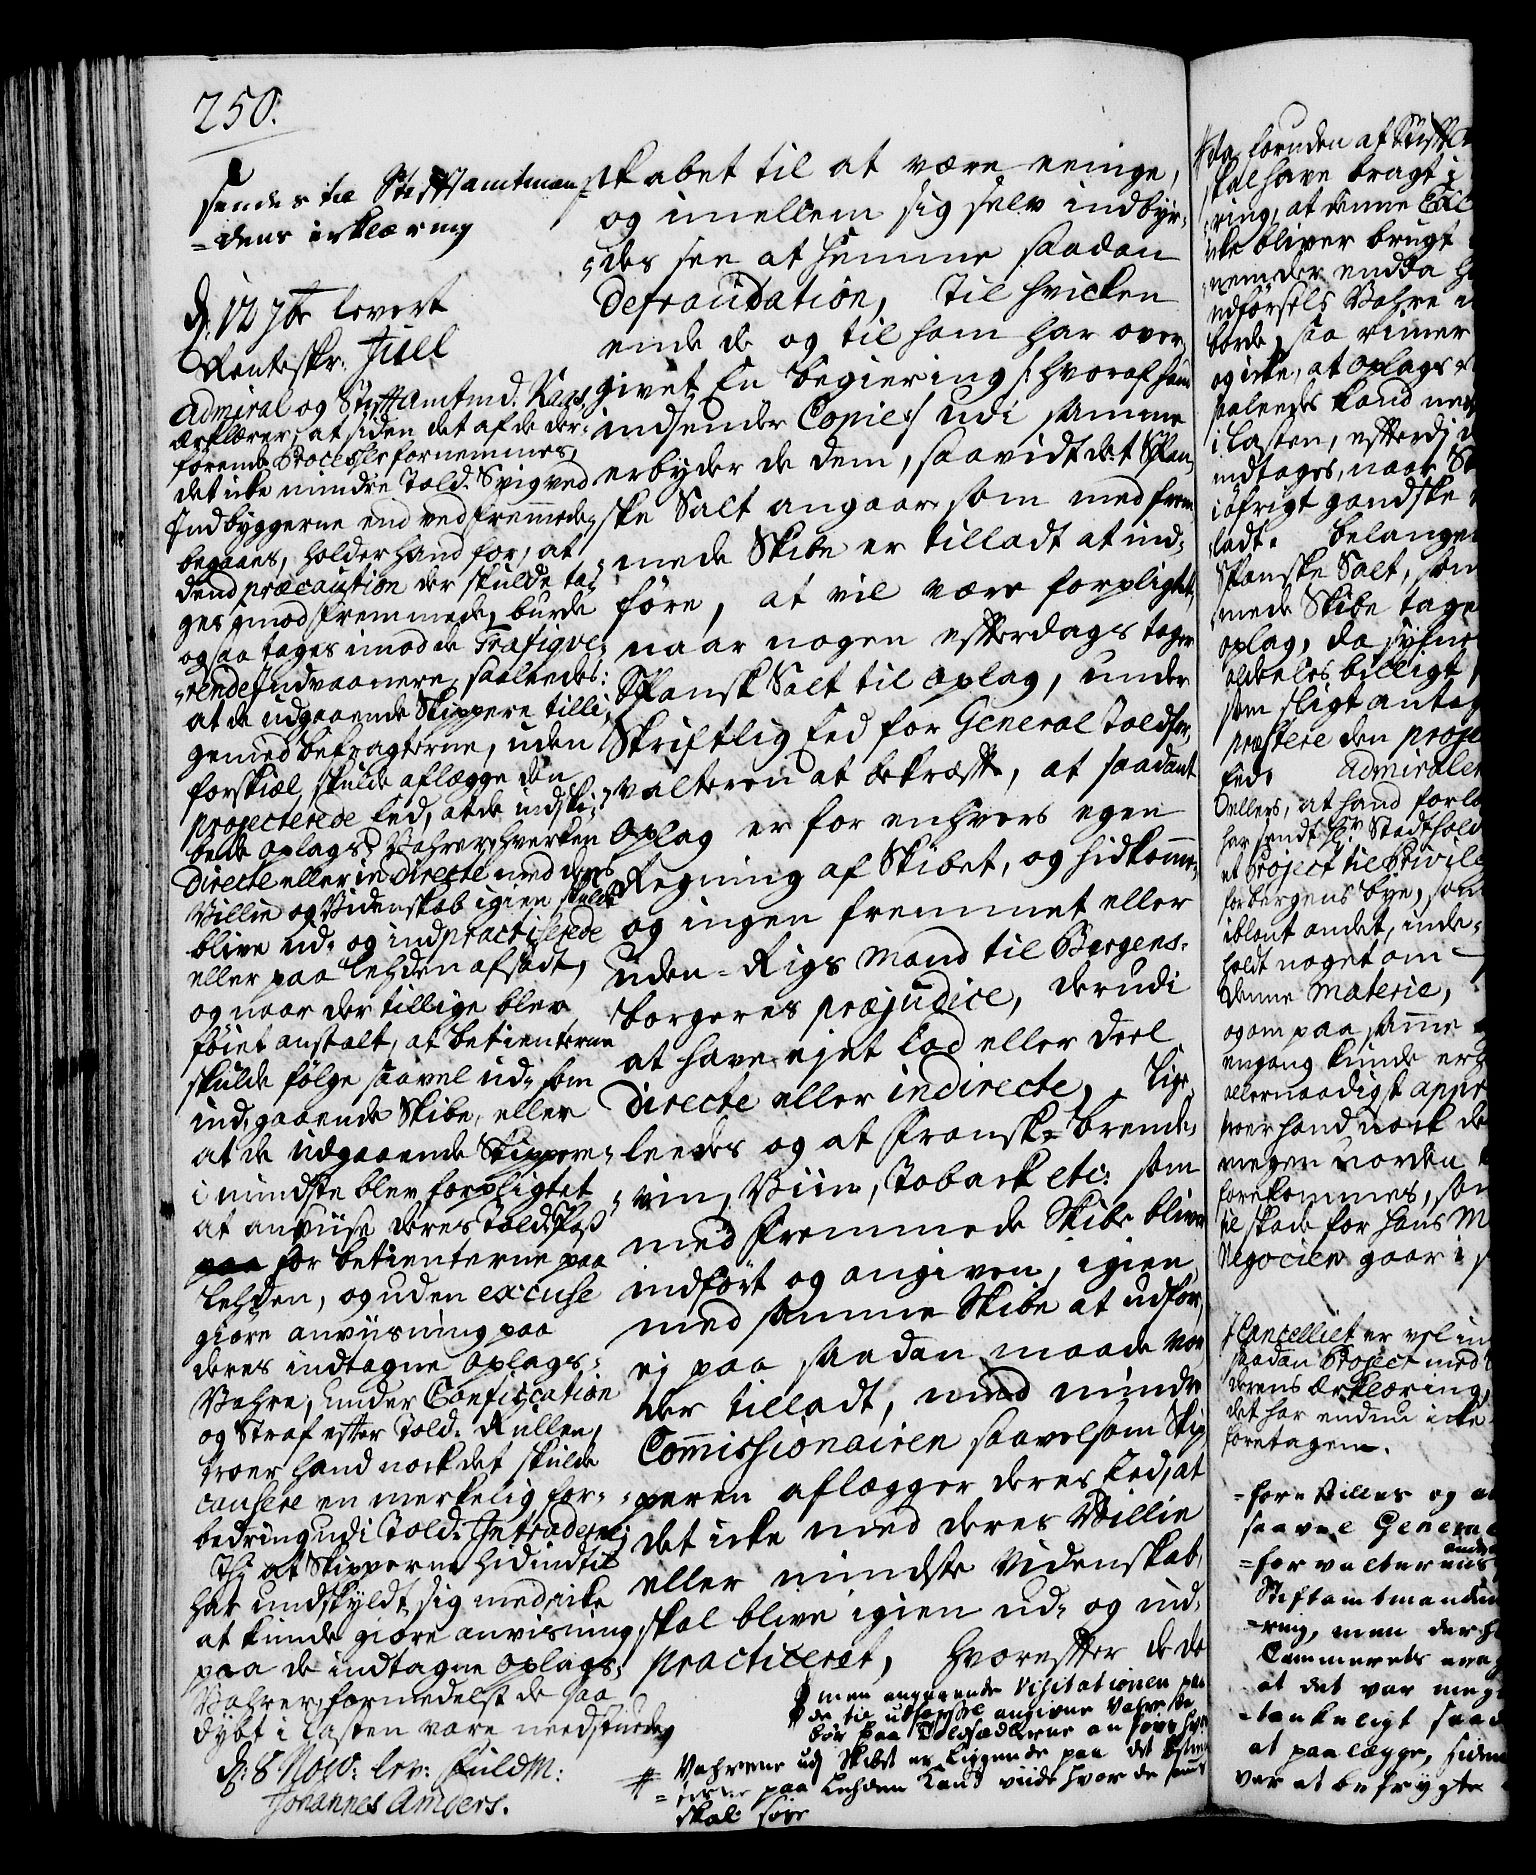 250.
sendes til Stifftamtman-
=dens erklæring
d. 12 7br levert
Renteskr. Juel
Admiral og Stifftamtmd. Kaas
Erklærer, at siden det af de der-
forende Processer fornemmes,
det icke mindre Told-Svig ved
Indbyggerne end ved fremmede
begaaes, holder hand for, at
dend præcaution der skulde ta-
ges imod fremmede, burde
og saa tages imod de Trafiqve-
rende Indvaanere, saaledes:
at de udgaaende Skippere tilli-
gemed befragterne, uden
forskiæl, skulde aflægge den
projecterede Eed, at de indski-
bede Oplags Vahrer hverken
directe eller indirecte med deres
Villie og Videnskab igien skulde
blive ud- og indpractiserede
eller paa Lehden afsadt,
og naar der tillige blev
føiet anstalt, at betienterne
skulde følge saavel ud- som
ind-gaaende Skibe, eller
at de udgaaende Skippere
i mindste blev forpligtet
at anviise deres Told-Pass
for betienterne paa
Lehden, og uden excuse
giøre anviisning paa
deres indtagne Oplags-
Vahre, under Confiscation
og Straf efter Told-Rullen,
troer hand nock det skulde
causere en merkelig for-
bedring udi Told-Intraderne,
Thi at Skipperne hidindtil
har undskyldt sig med, icke
at kunde giøre anvisning
paa de indtagne Oplags-
Vahrer, formedelst de saa
dybt i Lasten vare needstuede
d: 8 Nov: lev: Fuldm:
Johannes Anders.
skabet til at være eenige,
og imellem sig selv indbyr-
des see at hemme saadan
Defraudation, til hvilken
ende de og til ham har over-
givet En begiering /: hvoraf hand
indsender Copie :/ udi samme
erbyder de dem, saavidt det Span-
ske Salt angaar, som med frem-
mede Skibe er tilladt at ind-
føre, at vil være forpligtet,
naar nogen efterdags tager
Spansk Salt til oplag, under
Skriftlig Eed for General Toldfor-
valteren at bekræfte, at saadant
Oplag er for enhvers egen
Regning af Skibet, og hidkommen,
og ingen fremmet eller
uden-Rigs Mand til Bergens-
borgeres præjudice, derudi
at have ejet Lod eller deel
directe eller indirecte, Lige-
leedes og at Fransk-brende-
vin, Viin, Toback etc: som
med fremmede Skibe bliver
indført og angiven, igien
med samme Skibe at udføre,
ej paa saadan maade vor-
der tilladt, med mindre
Commissionairen saavelsom Skip-
peren aflægger deres Eed, at
det icke med deres Villie
eller mindste Videnskab
skal blive igien ud- og ind-
practiceret, hvorefter de da
men angaaende Visitationen paa
de til udførsel angivne Vahre
bør paa Toldsædlerne anføres hvor
Vahrene udj Skibet er liggende paa det betien-
terne paa Lehden kand viide hvor de samme
skal søge
foruden at Stifft
skal have bragt i
ring, at denne
icke bliver brugt
nem der endda
udførsels Vahre
borde, saa
og icke, at Oplags
saaleedes kand
i Lasten, efterdj
indtages, naar
i øfrigt gandske
ladt. Belange
Spanske Salt, som
mede Skibe tage
oplag, da synes
aldeeles billigt,
som sligt antag
præstere den proje
Eed. Admiralen
ellers, at hand
har sendt Hr Stadthold
et Project til Privile
for Bergens bye, som
iblant andet, inde-
holdt noget om
denne Materie,
og om paa samme
engang kunde
allernaadigst appr
troer hand nock
megen Uorden
forekommes, som
til skade for Hans M
Negocien gaar i
Cancelliet er vel in
saadan Project med
derens Erklæring,
det har endnu icke
foretagen.
=forestilles og
saavel General
=forvalterens
Stiftamtmanden
=ring, men derh
Cammerets
at det var meg
=tænkeligt saad
at paalægge, siden
var at befrygte